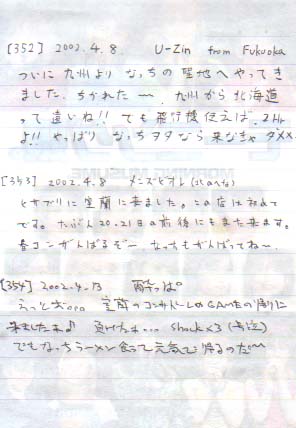 [352] 2002.4.8 U-Zin from Fukuoka
ついに 九州より なっちの聖地へやってき
ました。ちかれた〜 九州から北海道
って遠いね!! でも飛行機使えば、2Hr
よ!! やっぱり なっちヲタなら来なきゃダメ××
[353] 2002.4.8
ヒサブリに室蘭に来ました。この店は初めて
です。たぶん20.21日の前後にもまた来ます。
春コンがんばるぞー なっちもがんばってね〜。
[354] 2002.4.13 酔っぱ。
えっとぉ。。。室蘭の GAMEの帰りに
来ましたぁ♪ 負けたぁ... shock×3 (号泣)
でもなっちラーメン食って元気で帰るのだ〜